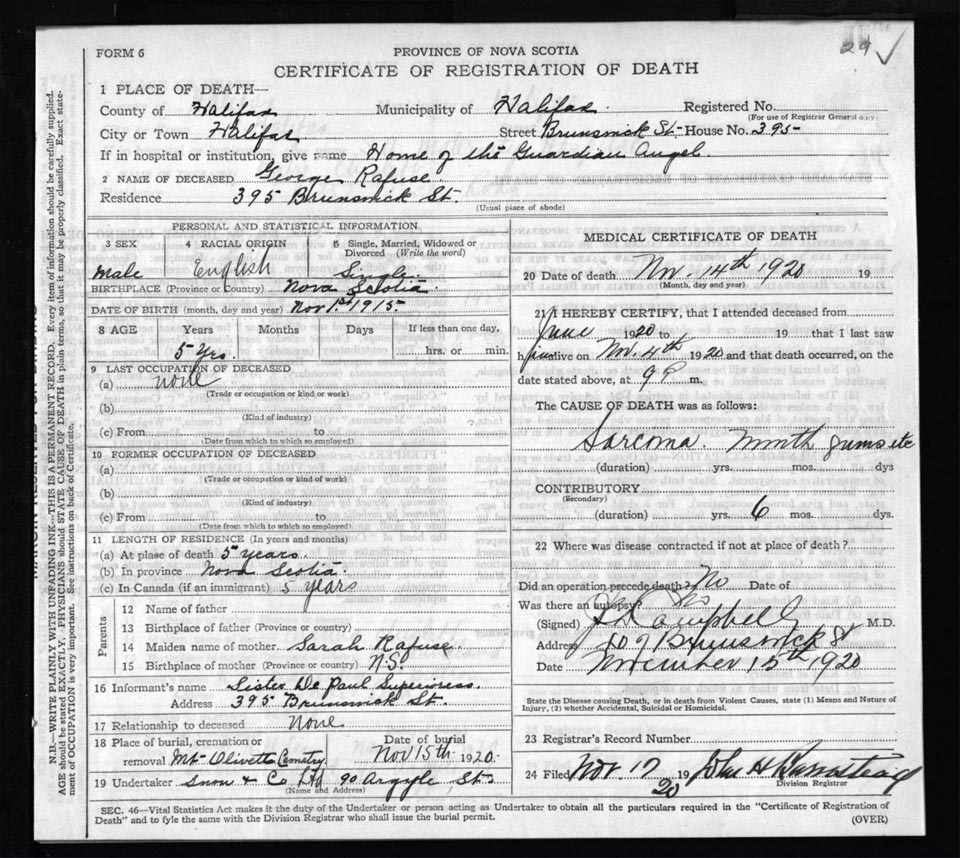 29
FORM 6
PROVINCE OF NOVA SCOTIA
CERTIFICATE OF REGISTRATION OF DEATH
1 PLACE OF DEATH—
County of Halifax Municipality of Halifax. Registered No.
(For use of Registrar General only)
City or Town Halifax Street Brunswick St- House No. 395-
If in hospital or institution, give name Home of the Guardian Angel.
2 NAME OF DECEASED George Rafuse.
Residence 395 Brunswick St.
(Usual place of abode)
PERSONAL AND STATISTICAL INFORMATION
3 SEX 4 RACIAL ORIGIN 5 Single, Married, Widowed or Divorced (Write the word)
male English Single
BIRTHPLACE (Province or Country) Nova Scotia
DATE OF BIRTH (month, day and year) Nov 1st 1915-
8 AGE Years Months Days If less than one day,
5 Yrs. hrs. or min.
9 LAST OCCUPATION OF DECEASED
(a) none
(Trade or occupation or kind or work)
(b)
(Kind of industry)
(c) From to
(Date from which to which so employed)
10 FORMER OCCUPATION OF DECEASED
(a)
(Trade or occupation or kind of work)
(b)
(Kind of industry)
(c) From to
(Date from which to which so employed)
11 LENGTH OF RESIDENCE (In years and months)
(a) At place of death 5 years.
(b) In province Nova Scotia.
(c) In Canada (if an immigrant) 5 years
Parents
12 Name of father
13 Birthplace of father (Province or country)
14 Maiden name of mother Sarah Rafuse.
15 Birthplace of mother (Province or country) N.S.
16 Informant's name Sister De Paul Superioress.
Address 395 Brunswick St.
17 Relationship to deceased None
18 Place of burial, cremation or removal Mt Olivett Cemetry Date of burial Nov 15th 1920.
19 Undertaker Snow & Co Ltd 90 Argyle St
(Name and Address)
MEDICAL CERTIFICATE OF DEATH
20 Date of death Nov. 14th 1920 19
(Month, day and year)
21 I HEREBY CERTIFY, that I attended deceased from
June 1920 to 19 that I last saw
h alive on Nov. 4th 1920 and that death occurred, on the
date stated above, at 9 P m.
The CAUSE OF DEATH was as follows:
Sarcoma. mouth gums etc
(duration) yrs. mos. dys
CONTRIBUTORY
(Secondary)
(duration) yrs. 6 mos. dys.
22 Where was disease contracted if not at place of death?
Did an operation precede death? No Date of
Was there an autopsy?
(Signed) Campbell M.D.
Address 107 Brunswick St
Date November 15th 1920
State the Disease causing Death, or in death from Violent Causes, state (1) Means and Nature of
Injury, (2) whether Accidental, Suicidal or Homicidal.
23 Registrar's Record Number
24 Filed Nov. 17 1920 John A Barnstead
Division Registrar
SEC. 46—Vital Statistics Act makes it the duty of the Undertaker or person acting as Undertaker to obtain all the particulars required in the "Certificate of Registration of
Death" and to fyle the same with the Division Registrar who shall issue the burial permit.
(OVER)
N.B.—WRITE PLAINLY WITH UNFADING INK—THIS IS A PERMANENT RECORD. Every item of information should be carefully supplied.
AGE should be stated EXACTLY. PHYSICIANS should STATE CAUSE OF DEATH in plain terms, so that it may be properly classified. Exact state-
ment of OCCUPATION is very important. See instructions on back of Certificate.